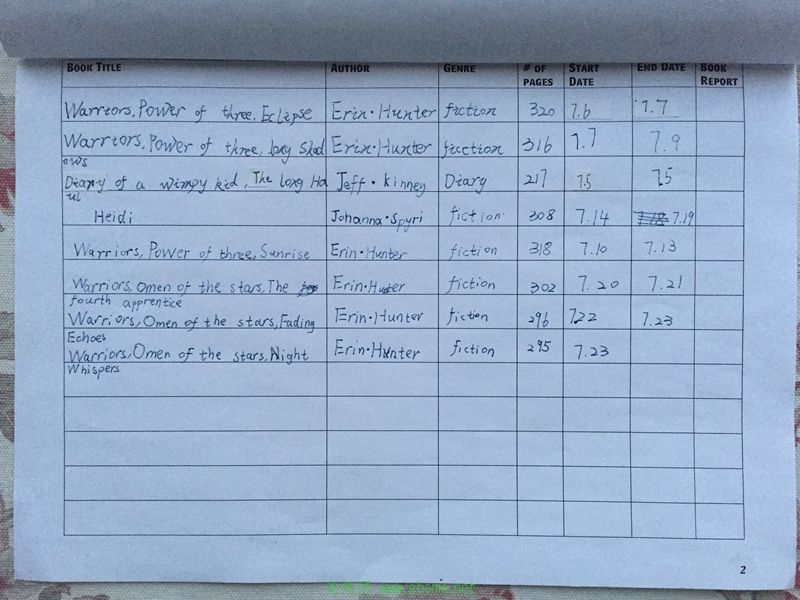 BOOK TITLE AUTHOR GENRE # OF PAGES START DATE END DATE BOOK REPORT
Warriors, Power of three, Eclipse Erin·Hunter fiction 320 7.6 7.7
Warriors, Power of three, long Shadows Erin·Hunter fiction 316 7.7 7.9
Diary of a Wimpy kid, The long Haul Jeff·kinney Diary 217 7.5 7.5
Heidi Johanna·Spyri fiction 308 7.14 7.19
Warriors, Power of three, Sunrise Erin·Hunter fiction 318 7.10 7.13
Warriors, Omen of the stars, The fourth apprentice Erin·Hunter fiction 302 7.20 7.21
Warriors, Omen of the stars, Fading Echoes Erin·Hunter fiction 296 7.22 7.23
Warriors, Omen of the stars, Night Whispers Erin·Hunter fiction 295 7.23
2